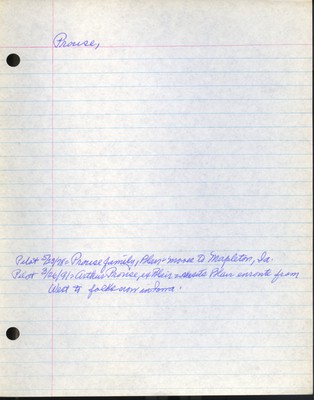 Prouse,
Pilot
Prouse family, Blair move to Mapleton, Ia.
Pilot Arthur Prouse, Blair visits Blair enroute from
West to folks now in Iowa.